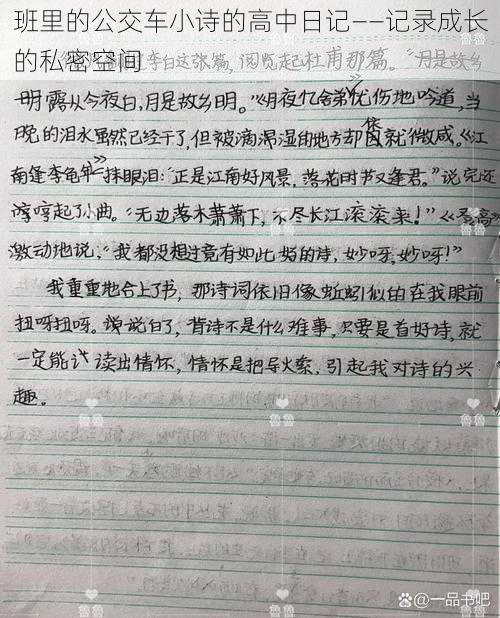 班里的公交车小诗的高中日记——记录成长
的私密空间
李白这张篇,阅览起杜甫那篇。“月是故乡
明 露从今夜白,月是故乡明。”《月夜忆舍弟》忧伤地吟道,当
晚的泪水虽然已经干了,但被滴湿的地方却依就微咸。《江
南逢李龟年》一抹眼泪:“正是江南好风景,落花时节又逢君。”说完还
哼哼起了小曲。“无边落木萧萧下,不尽长江滚滚来!”《登高》
激动地说,“我都没想过竟有如此好的诗,妙呀,妙呀!”
我重重地合上了书,那诗词依旧像蚯蚓似的在我眼前
扭呀扭呀。说说白了,背诗不是什么难事,只要是首好诗,就
一定能让 读出情怀,情怀是把导火索,引起我对诗的兴
趣。
鲁鲁
鲁鲁
鲁鲁
鲁鲁
鲁鲁
鲁鲁
鲁鲁
鲁鲁
@一品书吧